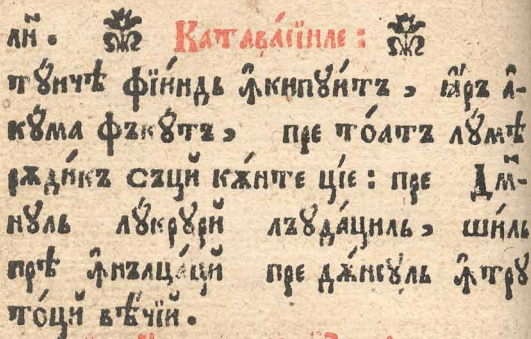 лй. Катава́сїиле:
тꙋ́нчѣ фїи́ндь ꙟ҆кипꙋи́тъ, ꙗ҆́ръ а҆-
кꙋ́ма фъкꙋ́тъ, пре то́атъ лꙋ́мѣ
рѫди́къ съцй кѫ́нте цїе: пре Дмⷩ҇-
нꙋ́ль лꙋ́крꙋрй лъꙋда́циль, шиль
прѣ ꙟ҆нълца́цй пре дѫ́нсꙋль ꙟ҆трꙋ
то́цй вѣ́чїй.